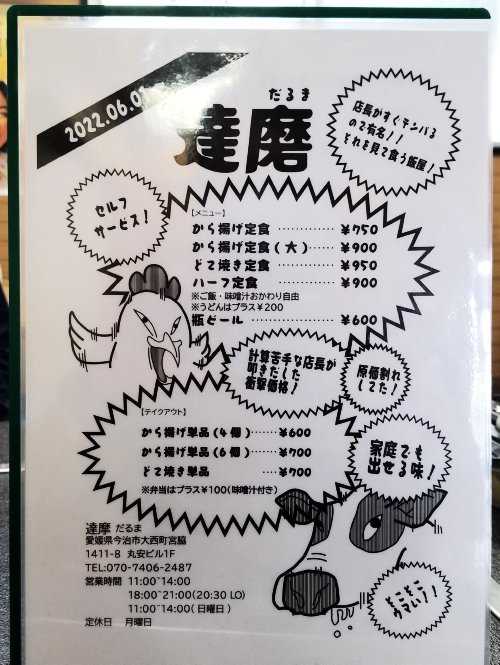 2022.06.01
だるま
達磨
店長がすぐテンパる
ので有名！！
それを見て食う飯屋！
セルフ
サービス！
【メニュー】
から揚げ定食 ・・・・・・・・・・・・・ ¥750
から揚げ定食(大)・・・・・・ ¥900
どて焼き定食 ・・・・・・・・・・・・・ ¥950
ハーフ定食 ・・・・・・・・・・・・・・・ ¥900
※ご飯・味噌汁おかわり自由
※うどんはプラス¥200
瓶ビール ・・・・・・・・・・・・・・・・・・ ¥600
計算苦手な店長が
叩きだした
衝撃価格！
原価割れ
してた！
【テイクアウト】
から揚げ単品(4個)・・・・・・¥600
から揚げ単品(6個)・・・・・・¥700
どて焼き単品 ・・・・¥700
※弁当はプラス¥100(味噌汁付き)
家庭でも
出せる味！
そこそこ
ウマい！！
達摩 だるま
愛媛県今治市大西町宮脇
1411-8 丸安ビル1F
TEL:070-7406-2487
営業時間 11:00~14:00
18:00~21:00(20:30 LO)
11:00~14:00(日曜日)
定休日 月曜日